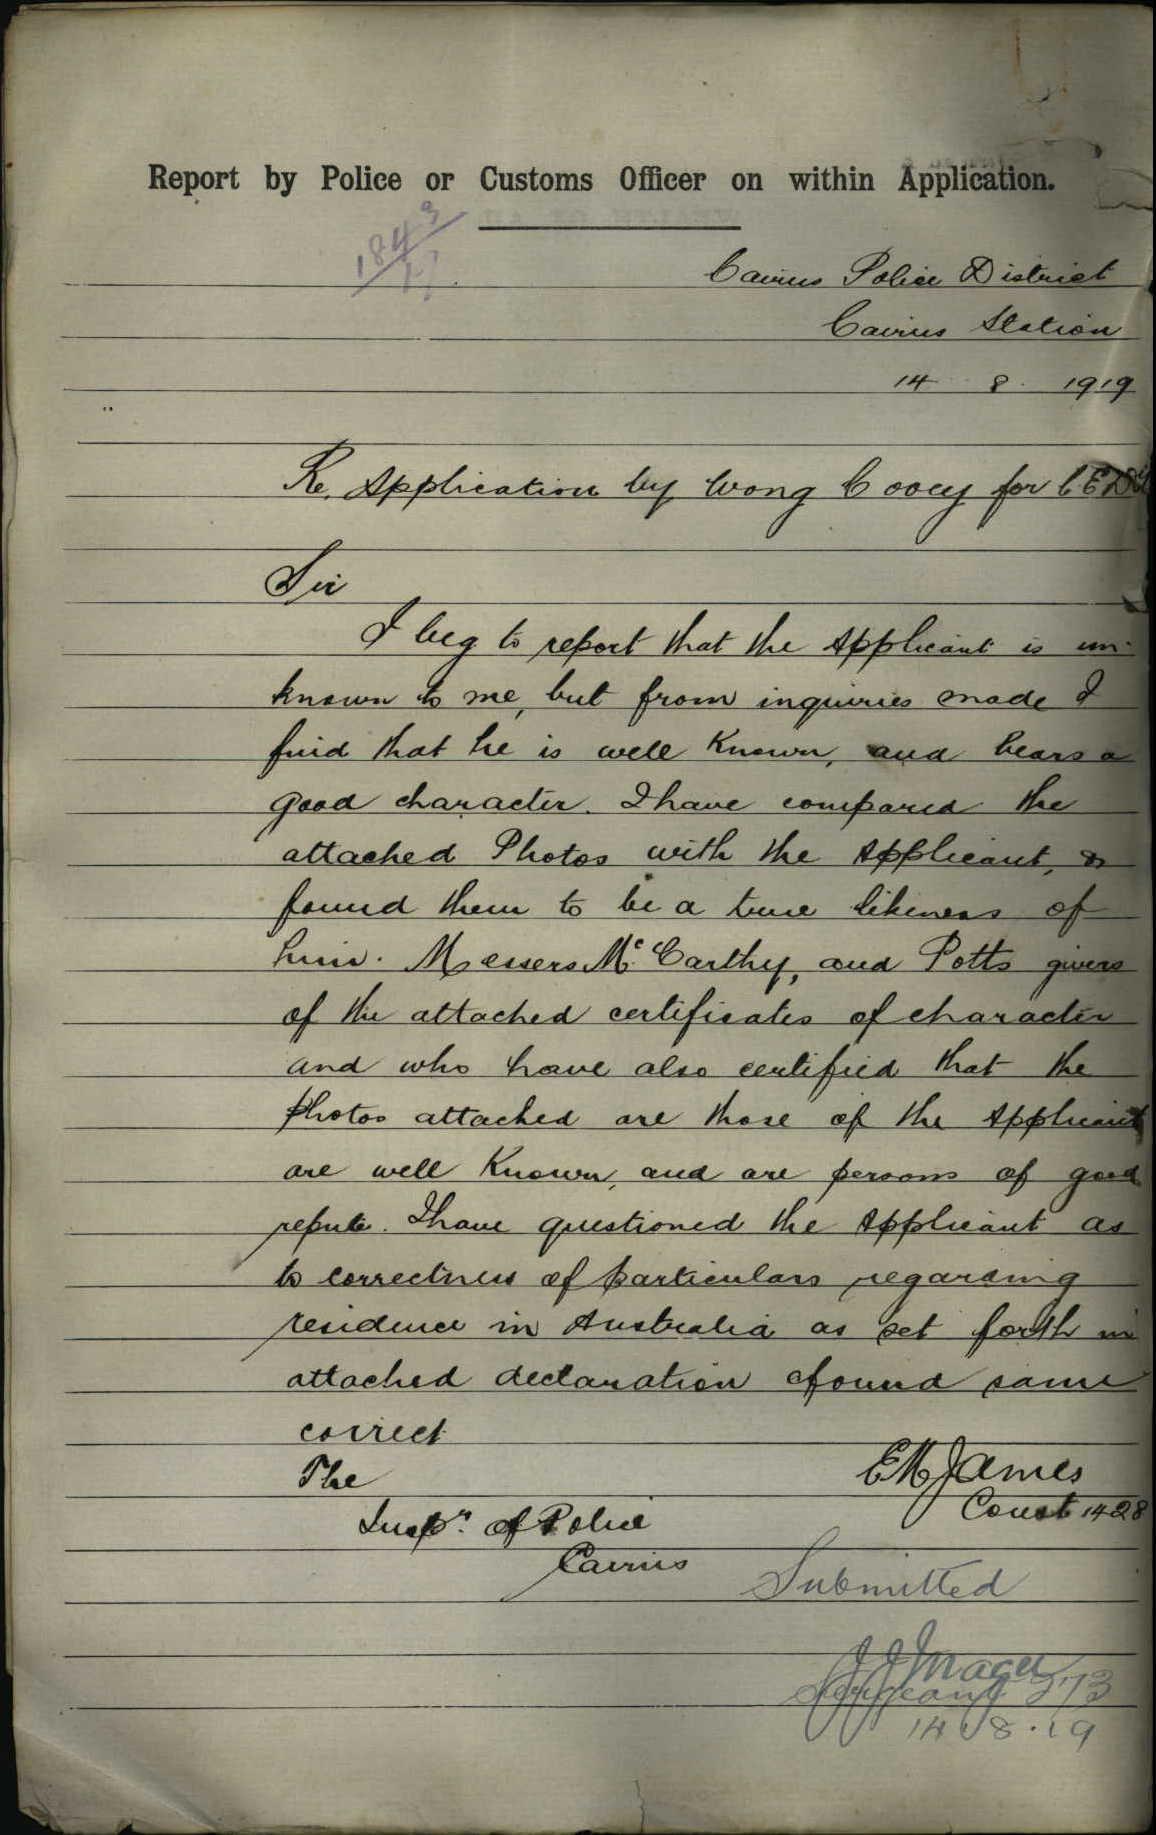 Report by Police or Customs Officer on within Application.
1843
Cairns Police District
Cairns Station
14 8. 1919
Re. Application by Wong Cooey for CEDT
Sir
I beg to report that the Applicant is un-
known to me, but from inquiries made I
find that he is well known, and bears a
good character. I have compared the
attached Photos with the Applicant, &
found them to be a true likeness of
him. Messers McCarthy, and Potts givers
of the attached certificates of character
and who have also certified that the
photos attached are those of the Applicant
are well known, and are persons of good
repute. I have questioned the Applicant as
to correctness of particulars regarding
residence in Australia as set forth in
attached declaration & found same
correct
The
E M James
Const 1428
Inspr. of Police
Cairns
Submitted
Sergeant 273
14.8.19